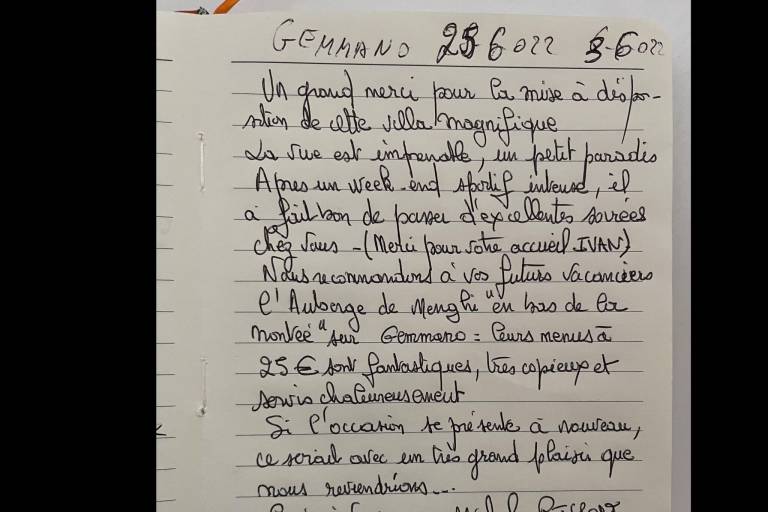 GEMMANO 25 6 022 5-6 022
Un grand merci pour la mise à dispo-
sition de cette villa magnifique
La vue est imprenable, un petit paradis
Apres un week-end sportif intense, il
a fait bon de passer d'excellentes soirées
chez Vous - (Merci pour votre accueil IVAN)
Nous recommandons à vos futurs vacanciers
l'Auberge de Menghi "en bas de la
montée" sur Gemmano = leurs menus à
25 € sont fantastiques, très copieux et
servis chaleureusement
Si l'occasion se présente à nouveau,
ce serait avec un très grand plaisir que
nous reviendrions...